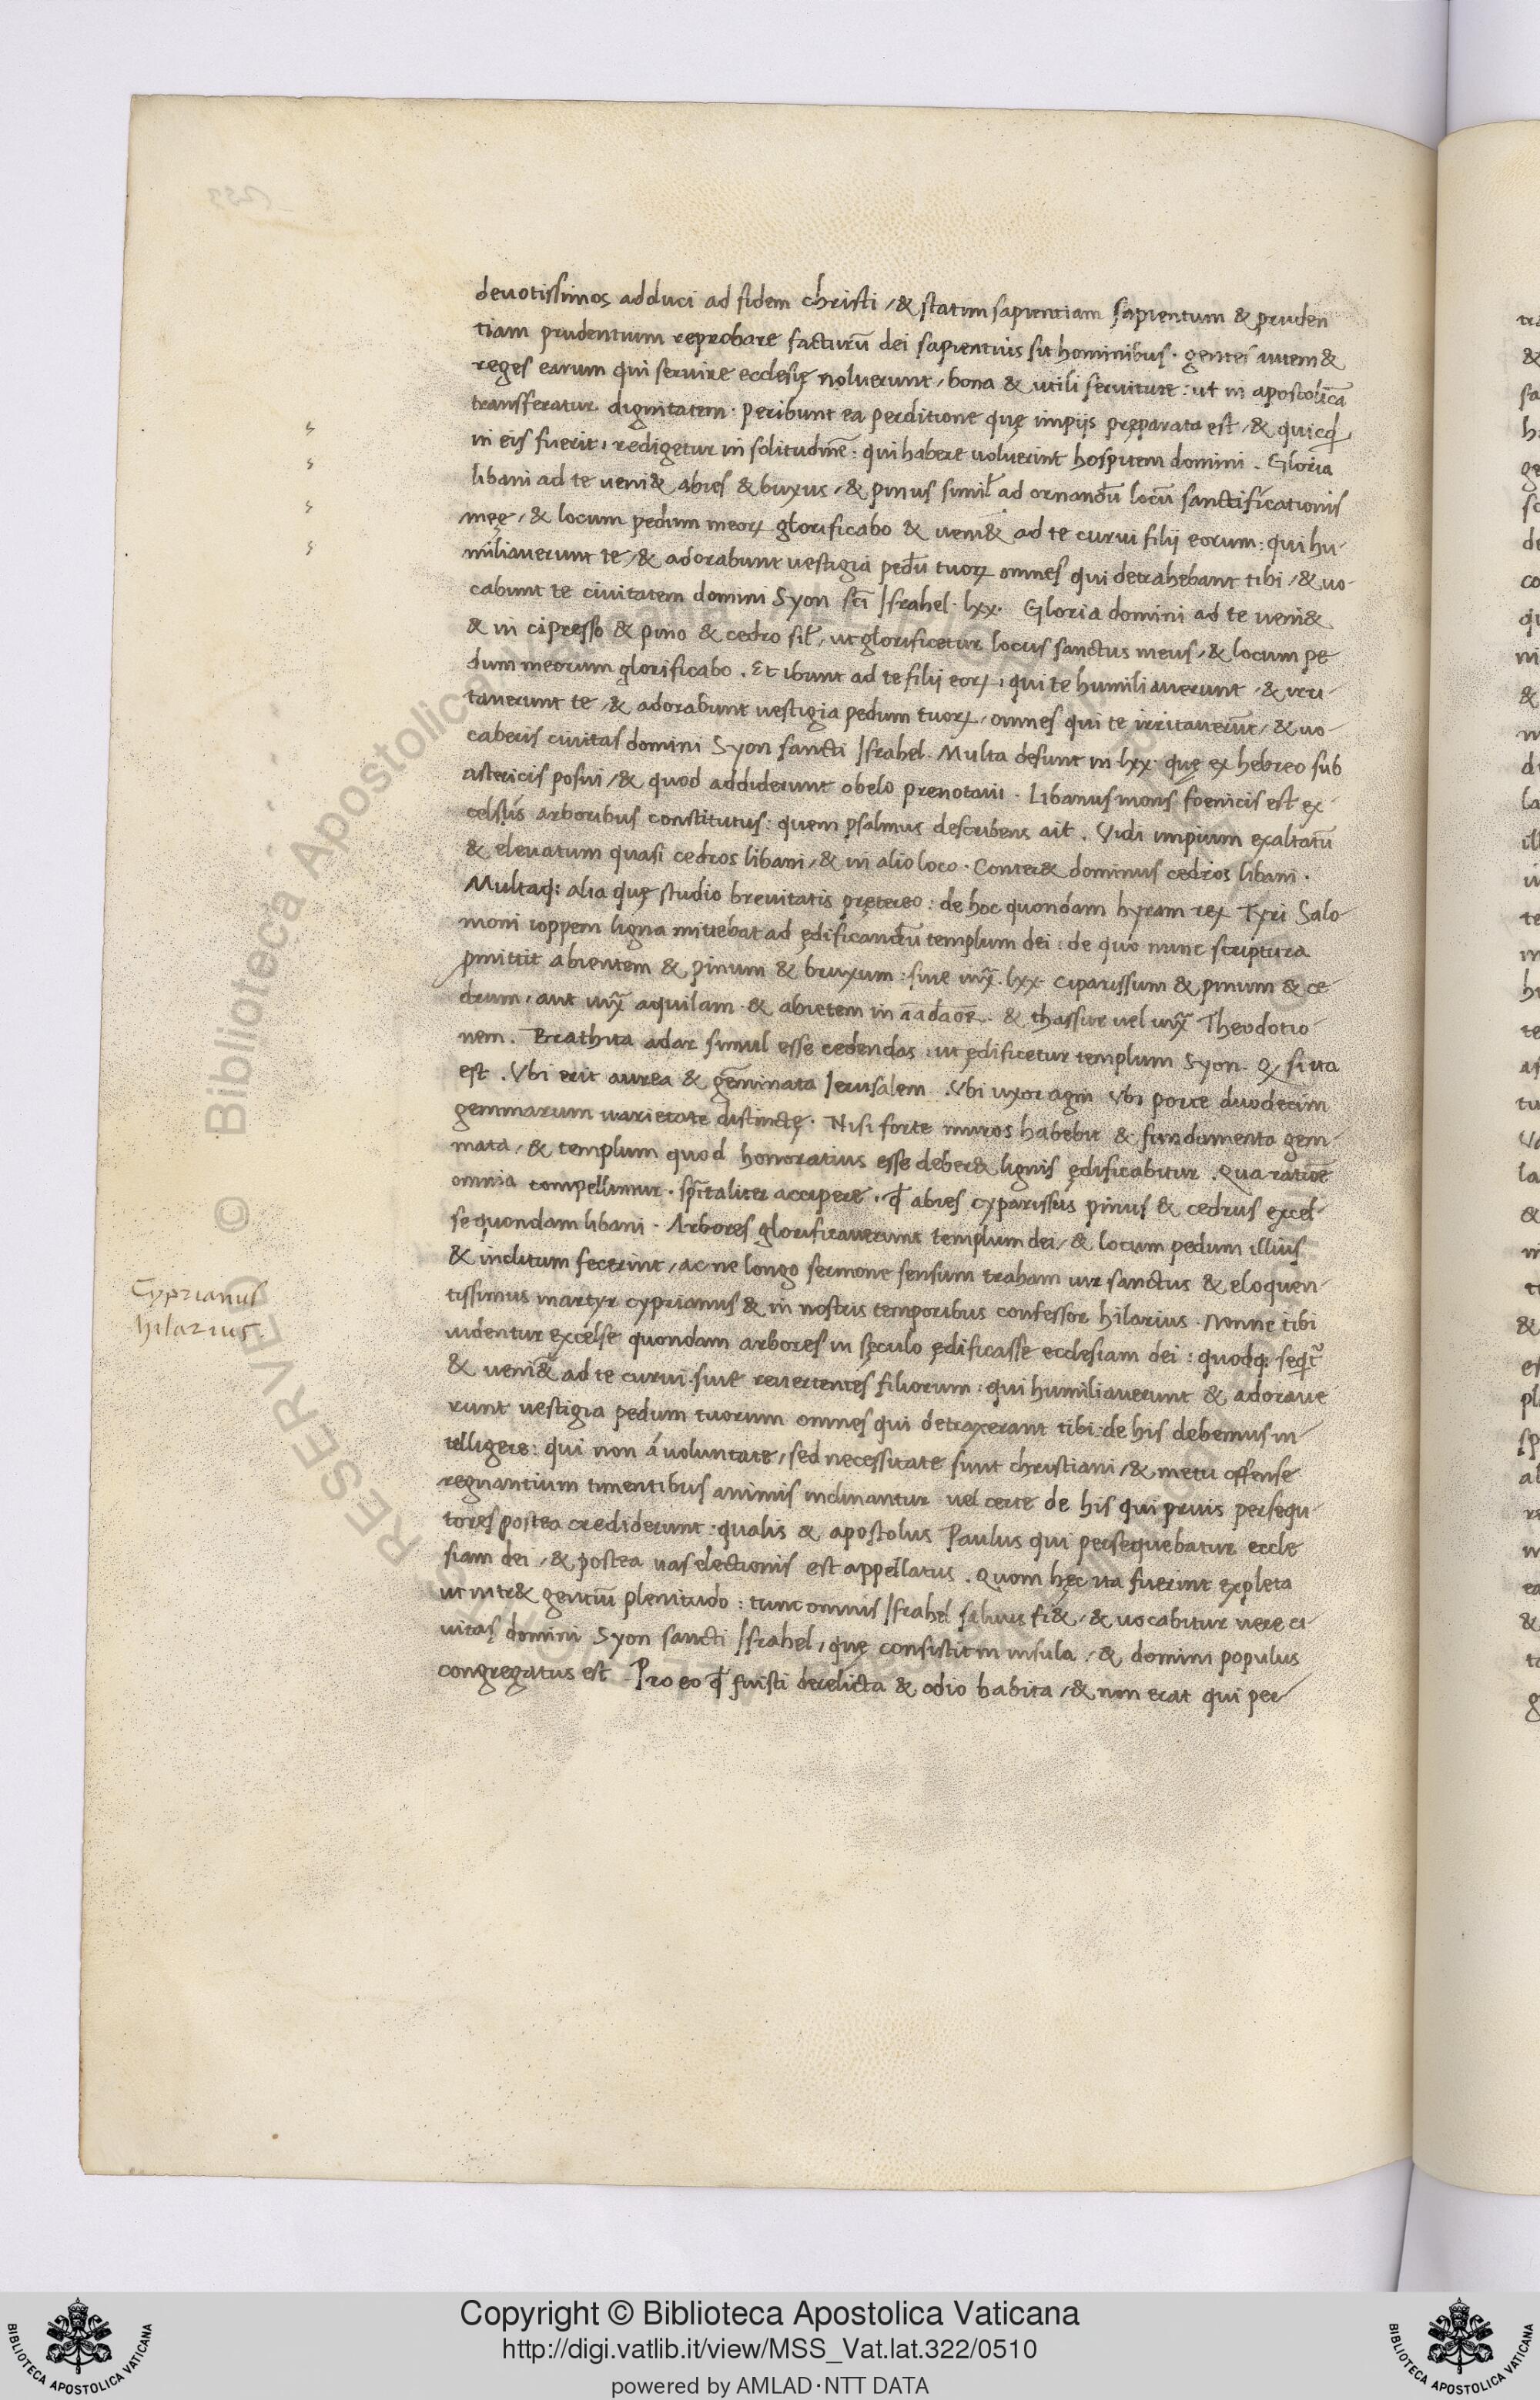 deuotissimos adduci ad fidem christi / & statim sapientiam sapientum & pruden
tiam prudentium reprobare facturū dei sapientius sit hominibus · gentes autem &
reges earum qui seruire ecclesię noluerunt / bona & utili seruitute : ut in apostolicā
transferatur dignitatem · peribunt ea perditione quę impijs pręparata est / & quicq̄d
in eis fuerit, redigetur in solitudinē : qui habere noluerint hospitem domini . Gloria
libani ad te ueni& abies & buxus / & pinus simil̄ ad ornandū locū sanctificationis
męę / & locum pedum meoꝝ glorificabo & ueni& ad te curui filij eorum : qui hu-
miliauerunt te / & adorabunt uestigia pedū tuoꝝ omnes qui detrahebant tibi / & uo-
cabunt te ciuitatem domini Syon sc̄i Israhel · lxx · Gloria domini ad te ueni&
& in cipresso & pino & cedro sil̄ / ut glorificetur locus sanctus meus / & locum pe
dum meorum glorificabo . Et ibunt ad te filij eoꝝ, qui te humiliauerunt / & irri-
tauerunt te / & adorabunt uestigia pedum tuoꝝ / omnes qui te irritauerūt / & uo-
caberis ciuitas domini Syon sancti Israhel . Multa desunt in lxx · quę ex hebreo sub
astericis posui / & quod addiderunt obelo prenotaui . Libanus mons foenicis est ex-
celsis arboribus constitutus : quem psalmus describens ait . Vidi impium exaltatū
& eleuatum quasi cedros libani / & in alio loco · Conter& dominus cedros libani .
Multaq; alia quę studio breuitatis pręterео : de hoc quondam hyram rex Tyri Salo-
moni ioppem ligna mittebat ad ędificandū templum dei : de quo nunc scriptura
ꝓmittit abientem & pinum & bruxum : siue iuxͣ · lxx · ciparissum & pinum & ce-
drum, aut iuxͣ aquilam · & abietem in & thassur uel iuxͣ Theodotio-
nem . Brathita adar simul esse cedendas : ut ędificetur templum Syon . si ita
est . Vbi erit aurea & gēminata Ierusalem . Vbi uxor agni Vbi porte duodecim
gemmarum uarietate distinctę . Nisi forte muros habebit & fundamenta gem-
mata / & templum quod honoratius esse deber& lignis ędificabitur . Qua ratiōe
omnia compellimur · spītaliter accipere, qđ abies cyparissus pinus & cedrus excel-
se quondam libani · Arbores glorificauerunt templum dei / & locum pedum illius
& inclitum fecerint / ac ne longo sermone sensum traham uir sanctus & eloquen-
tissimus martyr cyprianus & in nostris temporibus confessor hilarius . Nonne tibi
uidentur excelse quondam arbores in sęculo ędificasse ecclesiam dei : quodq; seqit̄
& ueni& ad te curui . siue reuertentes filiorum : qui humiliauerunt & adoraue-
runt uestigia pedum tuorum omnes qui detraxerant tibi : de his debemus in-
telligere : qui non á uoluntate / sed necessitate sunt christiani / & metu offense
regnantium timentibus animis inclinantur uel certe de his qui prius persequ-
tores postea crediderunt : qualis & apostolus Paulus qui persequebatur eccle
siam dei / & postea uas electionis est appellatus . Quom hęc ita fuerint expleta
ut intr& gentiū plenitudo : tunc omnis Israhel saluus fi& / & uocabitur uere ci-
uitas domini Syon sancti Israhel, quę consistit in insula / & domini populus
congregatus est . Pro eo qđ fuisti derelicta & odio habita / & non erat qui per
Cyprianus
hilarius.
© Biblioteca Apostolica Vaticana
Copyright © Biblioteca Apostolica Vaticana
http://digi.vatlib.it/view/MSS_Vat.lat.322/0510
powered by AMLAD·NTT DATA
BIBLIOTECA APOSTOLICA VATICANA
BIBLIOTECA APOSTOLICA VATICANA